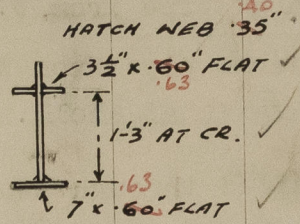 .40
HATCH WEB .35"
3 1/2" x .60" FLAT
.63
1'-3" AT CR.
.63
7" x .60" FLAT